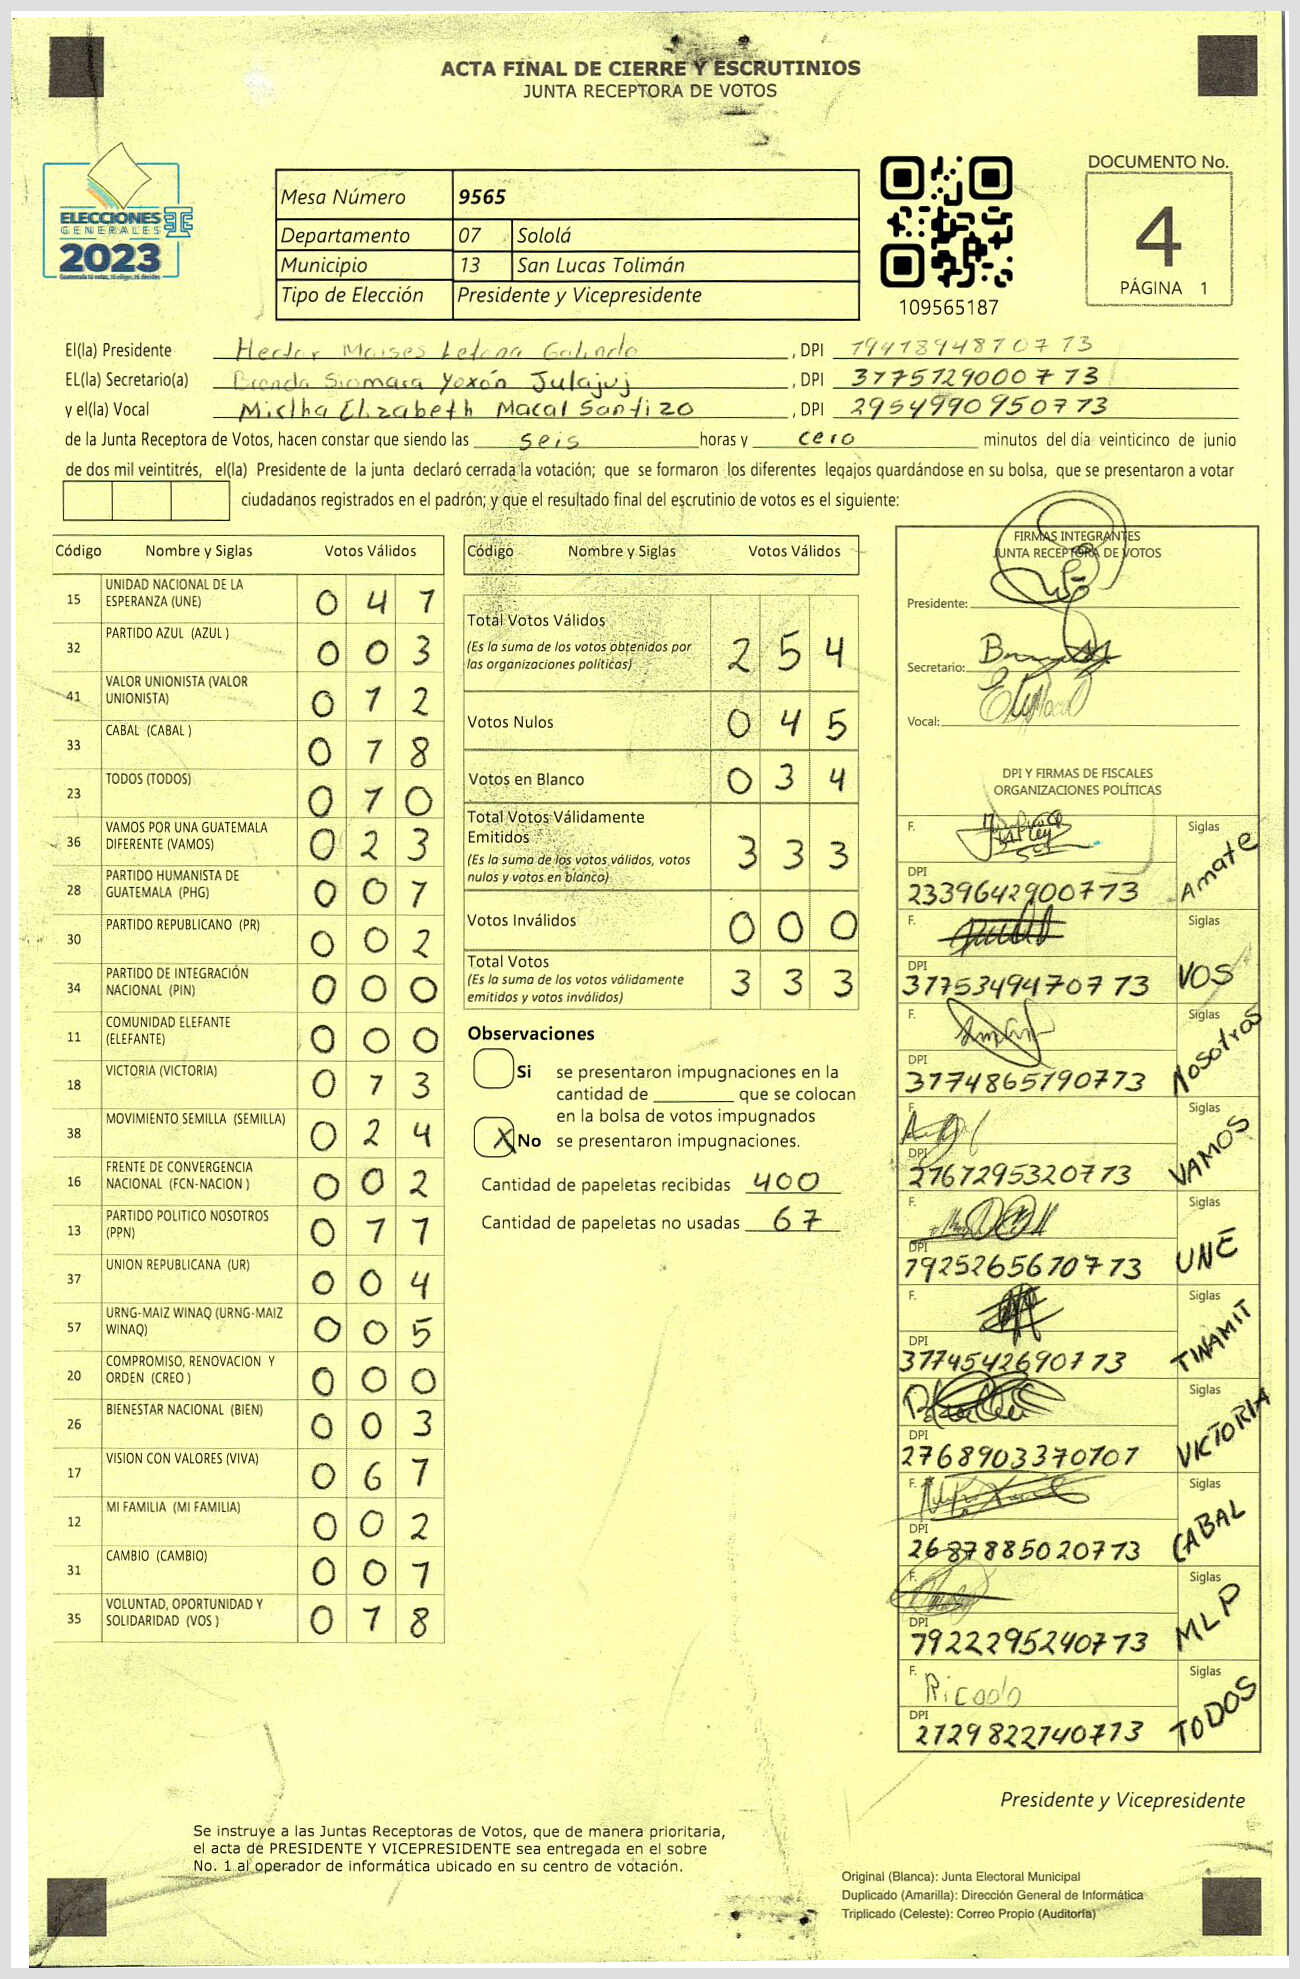 ACTA FINAL DE CIERRE Y ESCRUTINIOS
JUNTA RECEPTORA DE VOTOS
ELECCIONES
GENERALES
2023
Mesa Número 9565
Departamento 07 Sololá
Municipio 13 San Lucas Tolimán
Tipo de Elección Presidente y Vicepresidente
109565187
DOCUMENTO No.
4
PÁGINA 1
El(la) Presidente Hector Moises Letona Galindo , DPI 1941894810713
EL(la) Secretario(a) Brenda Siomara Yoxón Julajuj , DPI 3775129000713
y el(la) Vocal Mirtha Elizabeth Macal Santizo , DPI 2954990950713
de la Junta Receptora de Votos, hacen constar que siendo las seis horas y cero minutos del día veinticinco de junio
de dos mil veintitrés, el(la) Presidente de la junta declaró cerrada la votación; que se formaron los diferentes legajos quardándose en su bolsa, que se presentaron a votar
ciudadanos registrados en el padrón; y que el resultado final del escrutinio de votos es el siguiente:
Código Nombre y Siglas Votos Válidos
15 UNIDAD NACIONAL DE LA ESPERANZA (UNE) 0 4 1
32 PARTIDO AZUL (AZUL ) 0 0 3
41 VALOR UNIONISTA (VALOR UNIONISTA) 0 1 2
33 CABAL (CABAL ) 0 1 8
23 TODOS (TODOS) 0 1 0
36 VAMOS POR UNA GUATEMALA DIFERENTE (VAMOS) 0 2 3
28 PARTIDO HUMANISTA DE GUATEMALA (PHG) 0 0 1
30 PARTIDO REPUBLICANO (PR) 0 0 2
34 PARTIDO DE INTEGRACIÓN NACIONAL (PIN) 0 0 0
11 COMUNIDAD ELEFANTE (ELEFANTE) 0 0 0
18 VICTORIA (VICTORIA) 0 1 3
38 MOVIMIENTO SEMILLA (SEMILLA) 0 2 4
16 FRENTE DE CONVERGENCIA NACIONAL (FCN-NACION ) 0 0 2
13 PARTIDO POLITICO NOSOTROS (PPN) 0 1 1
37 UNION REPUBLICANA (UR) 0 0 4
57 URNG-MAIZ WINAQ (URNG-MAIZ WINAQ) 0 0 5
20 COMPROMISO, RENOVACION Y ORDEN (CREO ) 0 0 0
26 BIENESTAR NACIONAL (BIEN) 0 0 3
17 VISION CON VALORES (VIVA) 0 6 1
12 MI FAMILIA (MI FAMILIA) 0 0 2
31 CAMBIO (CAMBIO) 0 0 1
35 VOLUNTAD, OPORTUNIDAD Y SOLIDARIDAD (VOS ) 0 1 8
Código Nombre y Siglas Votos Válidos
Total Votos Válidos
(Es la suma de los votos obtenidos por las organizaciones políticas) 2 5 4
Votos Nulos 0 4 5
Votos en Blanco 0 3 4
Total Votos Válidamente Emitidos
(Es la suma de los votos válidos, votos nulos y votos en blanco) 3 3 3
Votos Inválidos 0 0 0
Total Votos
(Es la suma de los votos válidamente emitidos y votos inválidos) 3 3 3
Observaciones
Si se presentaron impugnaciones en la
cantidad de ________ que se colocan
en la bolsa de votos impugnados
X No se presentaron impugnaciones.
Cantidad de papeletas recibidas 400
Cantidad de papeletas no usadas 67
FIRMAS INTEGRANTES
JUNTA RECEPTORA DE VOTOS
Presidente:
Secretario:
Vocal:
DPI Y FIRMAS DE FISCALES
ORGANIZACIONES POLÍTICAS
F. Siglas Amate
DPI 2339642900713
F. Siglas VOS
DPI 3775349470713
F. Siglas Nosotros
DPI 3774865190713
F. Siglas VAMOS
DPI 2167295320713
F. Siglas UNE
DPI 1925265610713
F. Siglas TINAMIT
DPI 3774542690713
F. Siglas VICTORIA
DPI 2768903370701
F. Siglas CABAL
DPI 2687885020713
F. Siglas MLP
DPI 1922295240713
F. Ricado Siglas TODOS
DPI 2129822140713
Presidente y Vicepresidente
Se instruye a las Juntas Receptoras de Votos, que de manera prioritaria,
el acta de PRESIDENTE Y VICEPRESIDENTE sea entregada en el sobre
No. 1 al operador de informática ubicado en su centro de votación.
Original (Blanca): Junta Electoral Municipal
Duplicado (Amarilla): Dirección General de Informática
Triplicado (Celeste): Correo Propio (Auditoría)